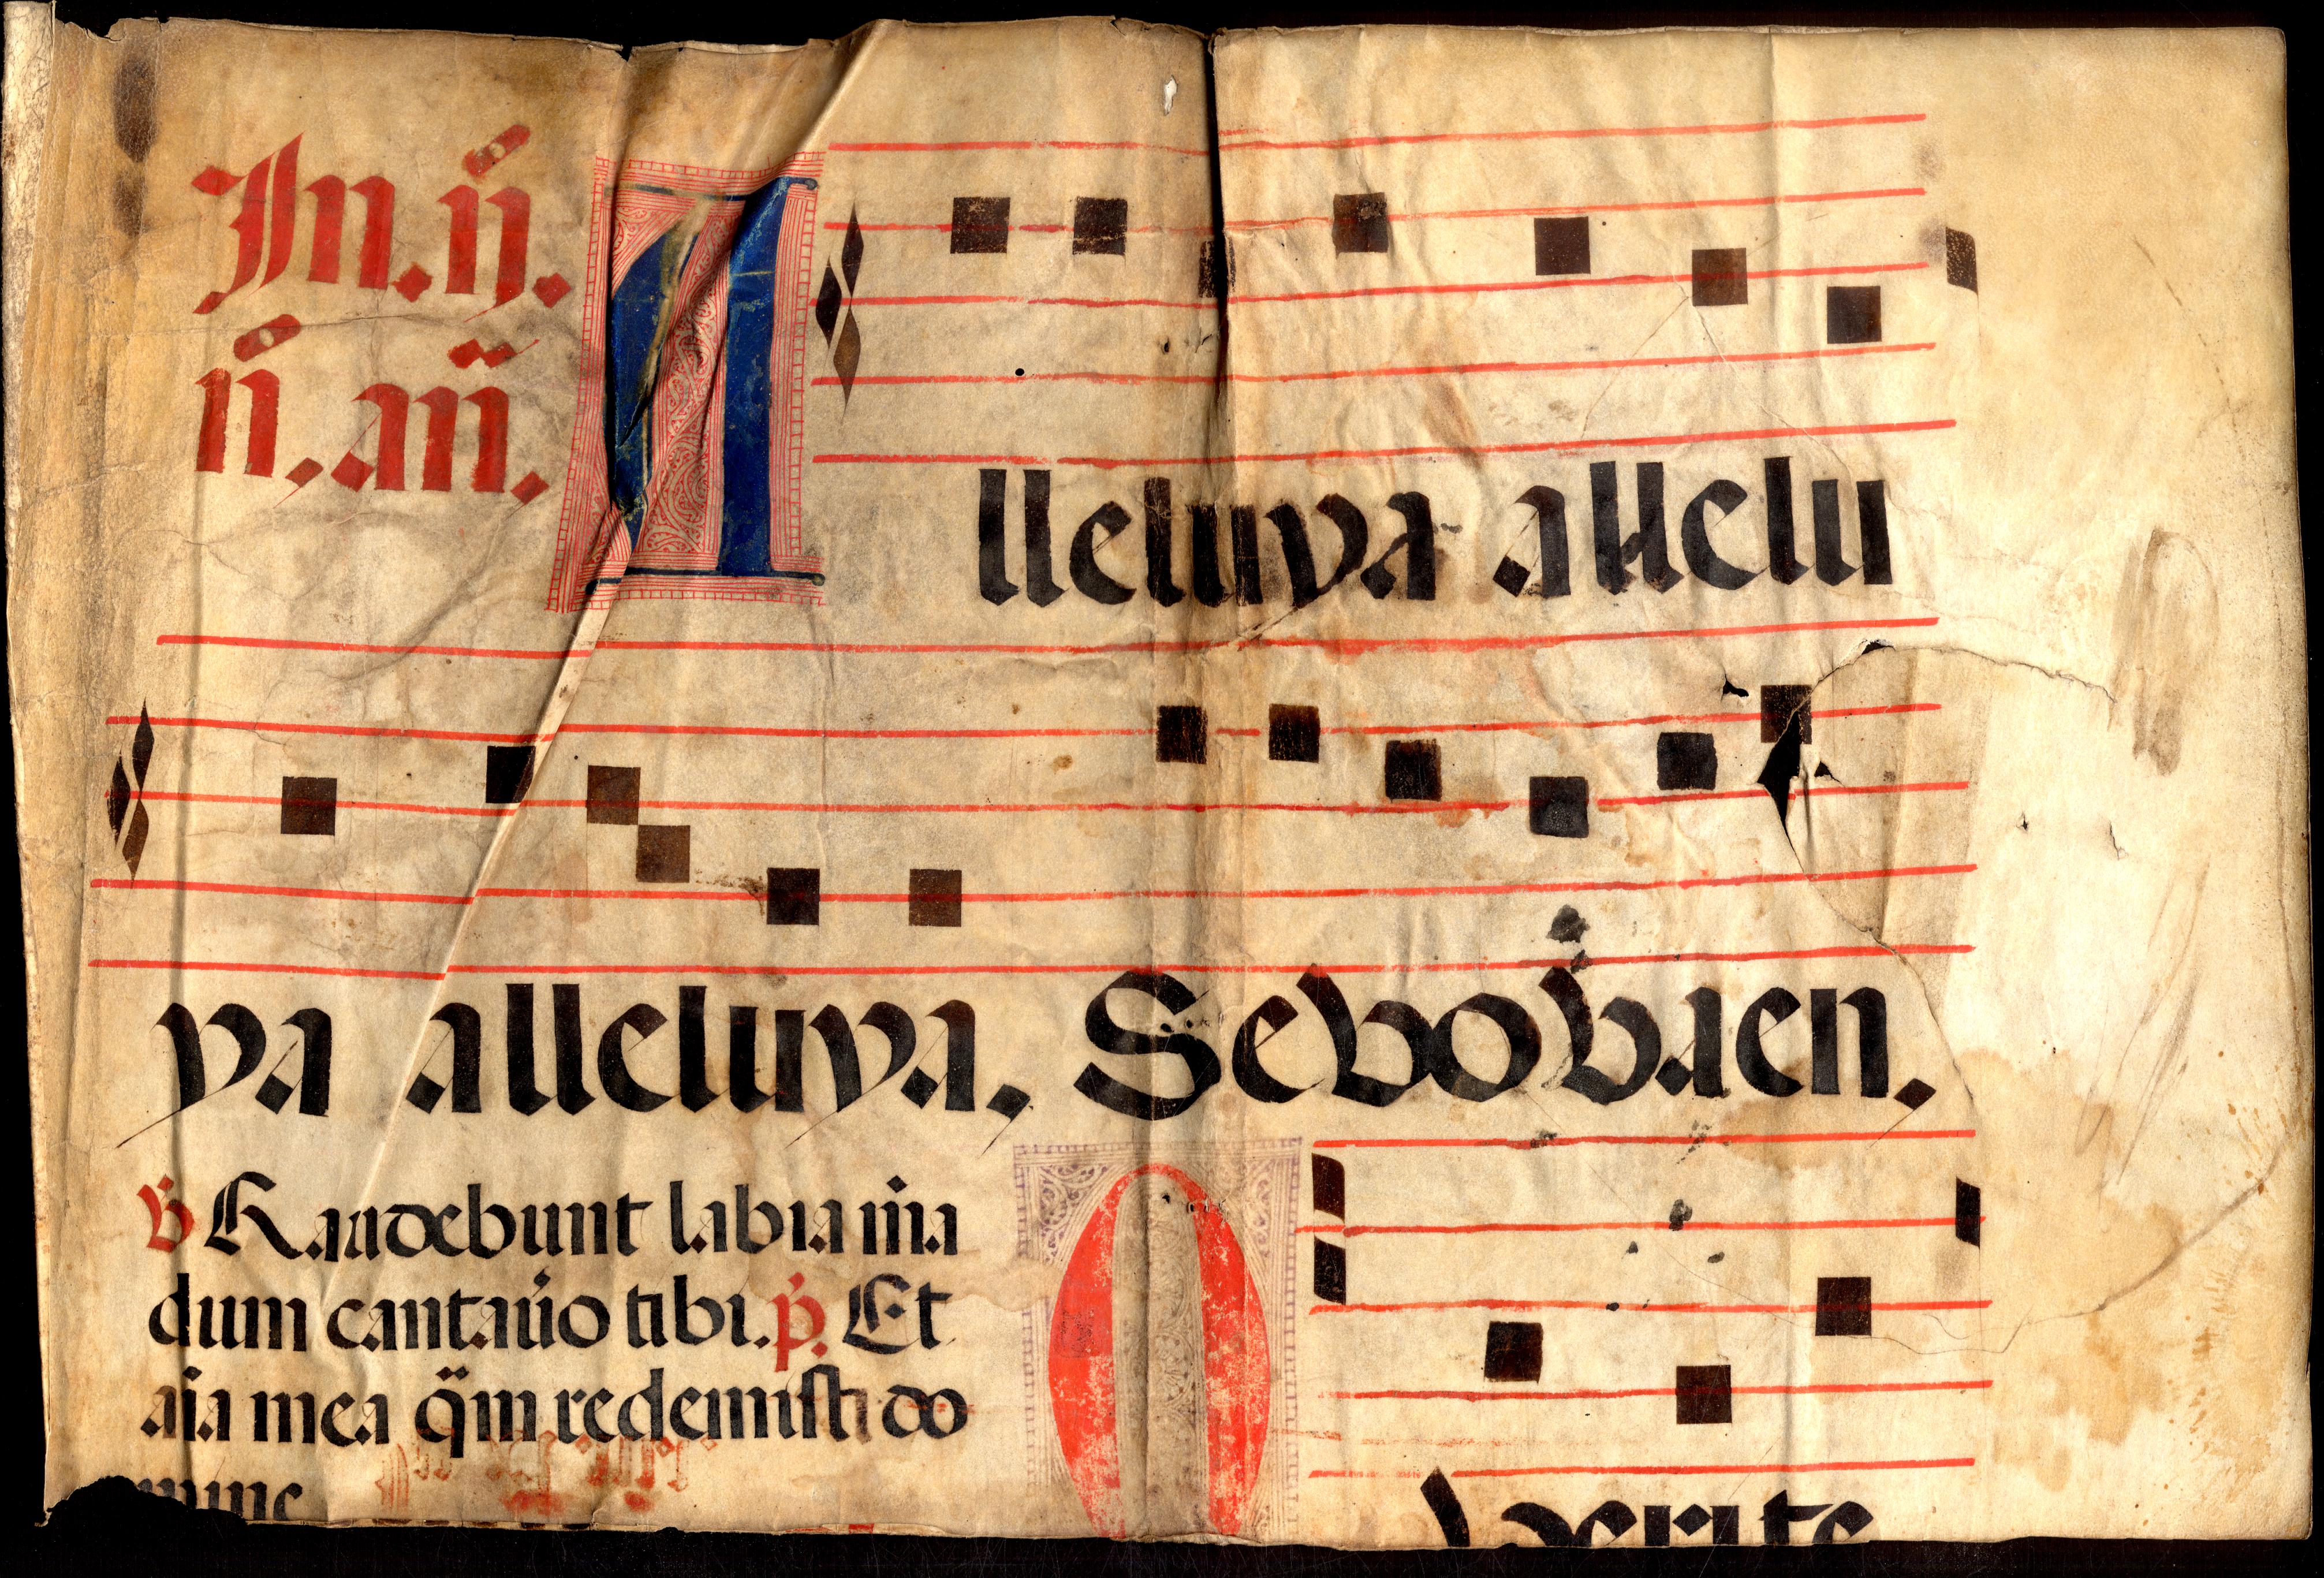 In. ij̄.
n̄. an̄.
A
lleluya allelu
ya alleluya. Seuouaen.
v̄ Gaudebunt labia m̄a
dum cantau̅o tibi. p̄. Et
aīa mea q̄m redemisti do
mine
O